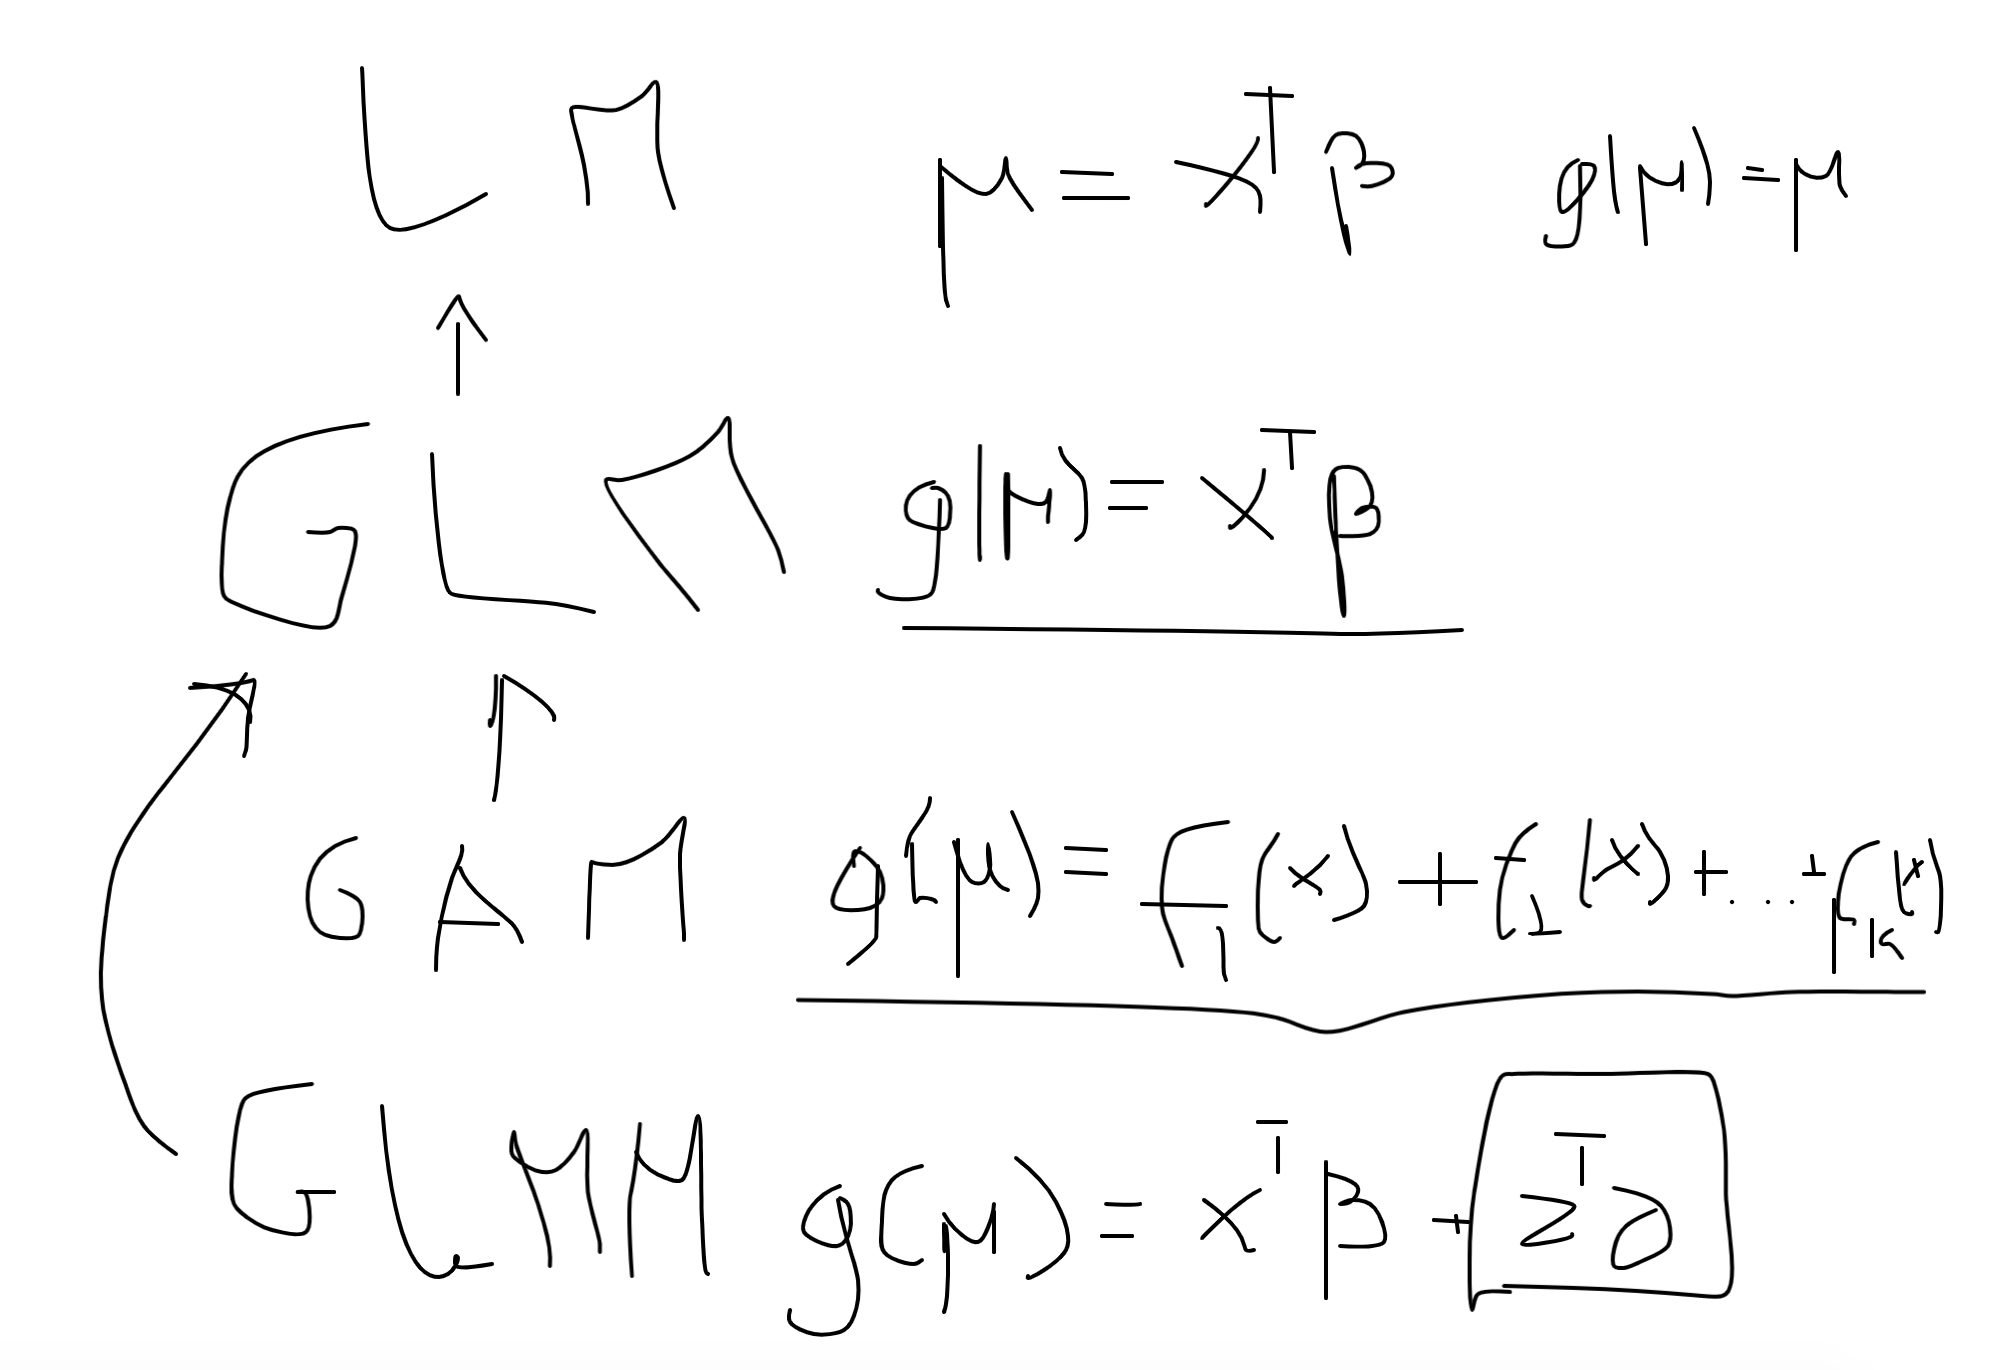 LM μ = x^T β g(μ) = μ
GLM g(μ) = x^T β
GAM g(μ) = f_1(x) + f_2(x) + ... + f_k(x)
GLMM g(μ) = x^T β + z^T